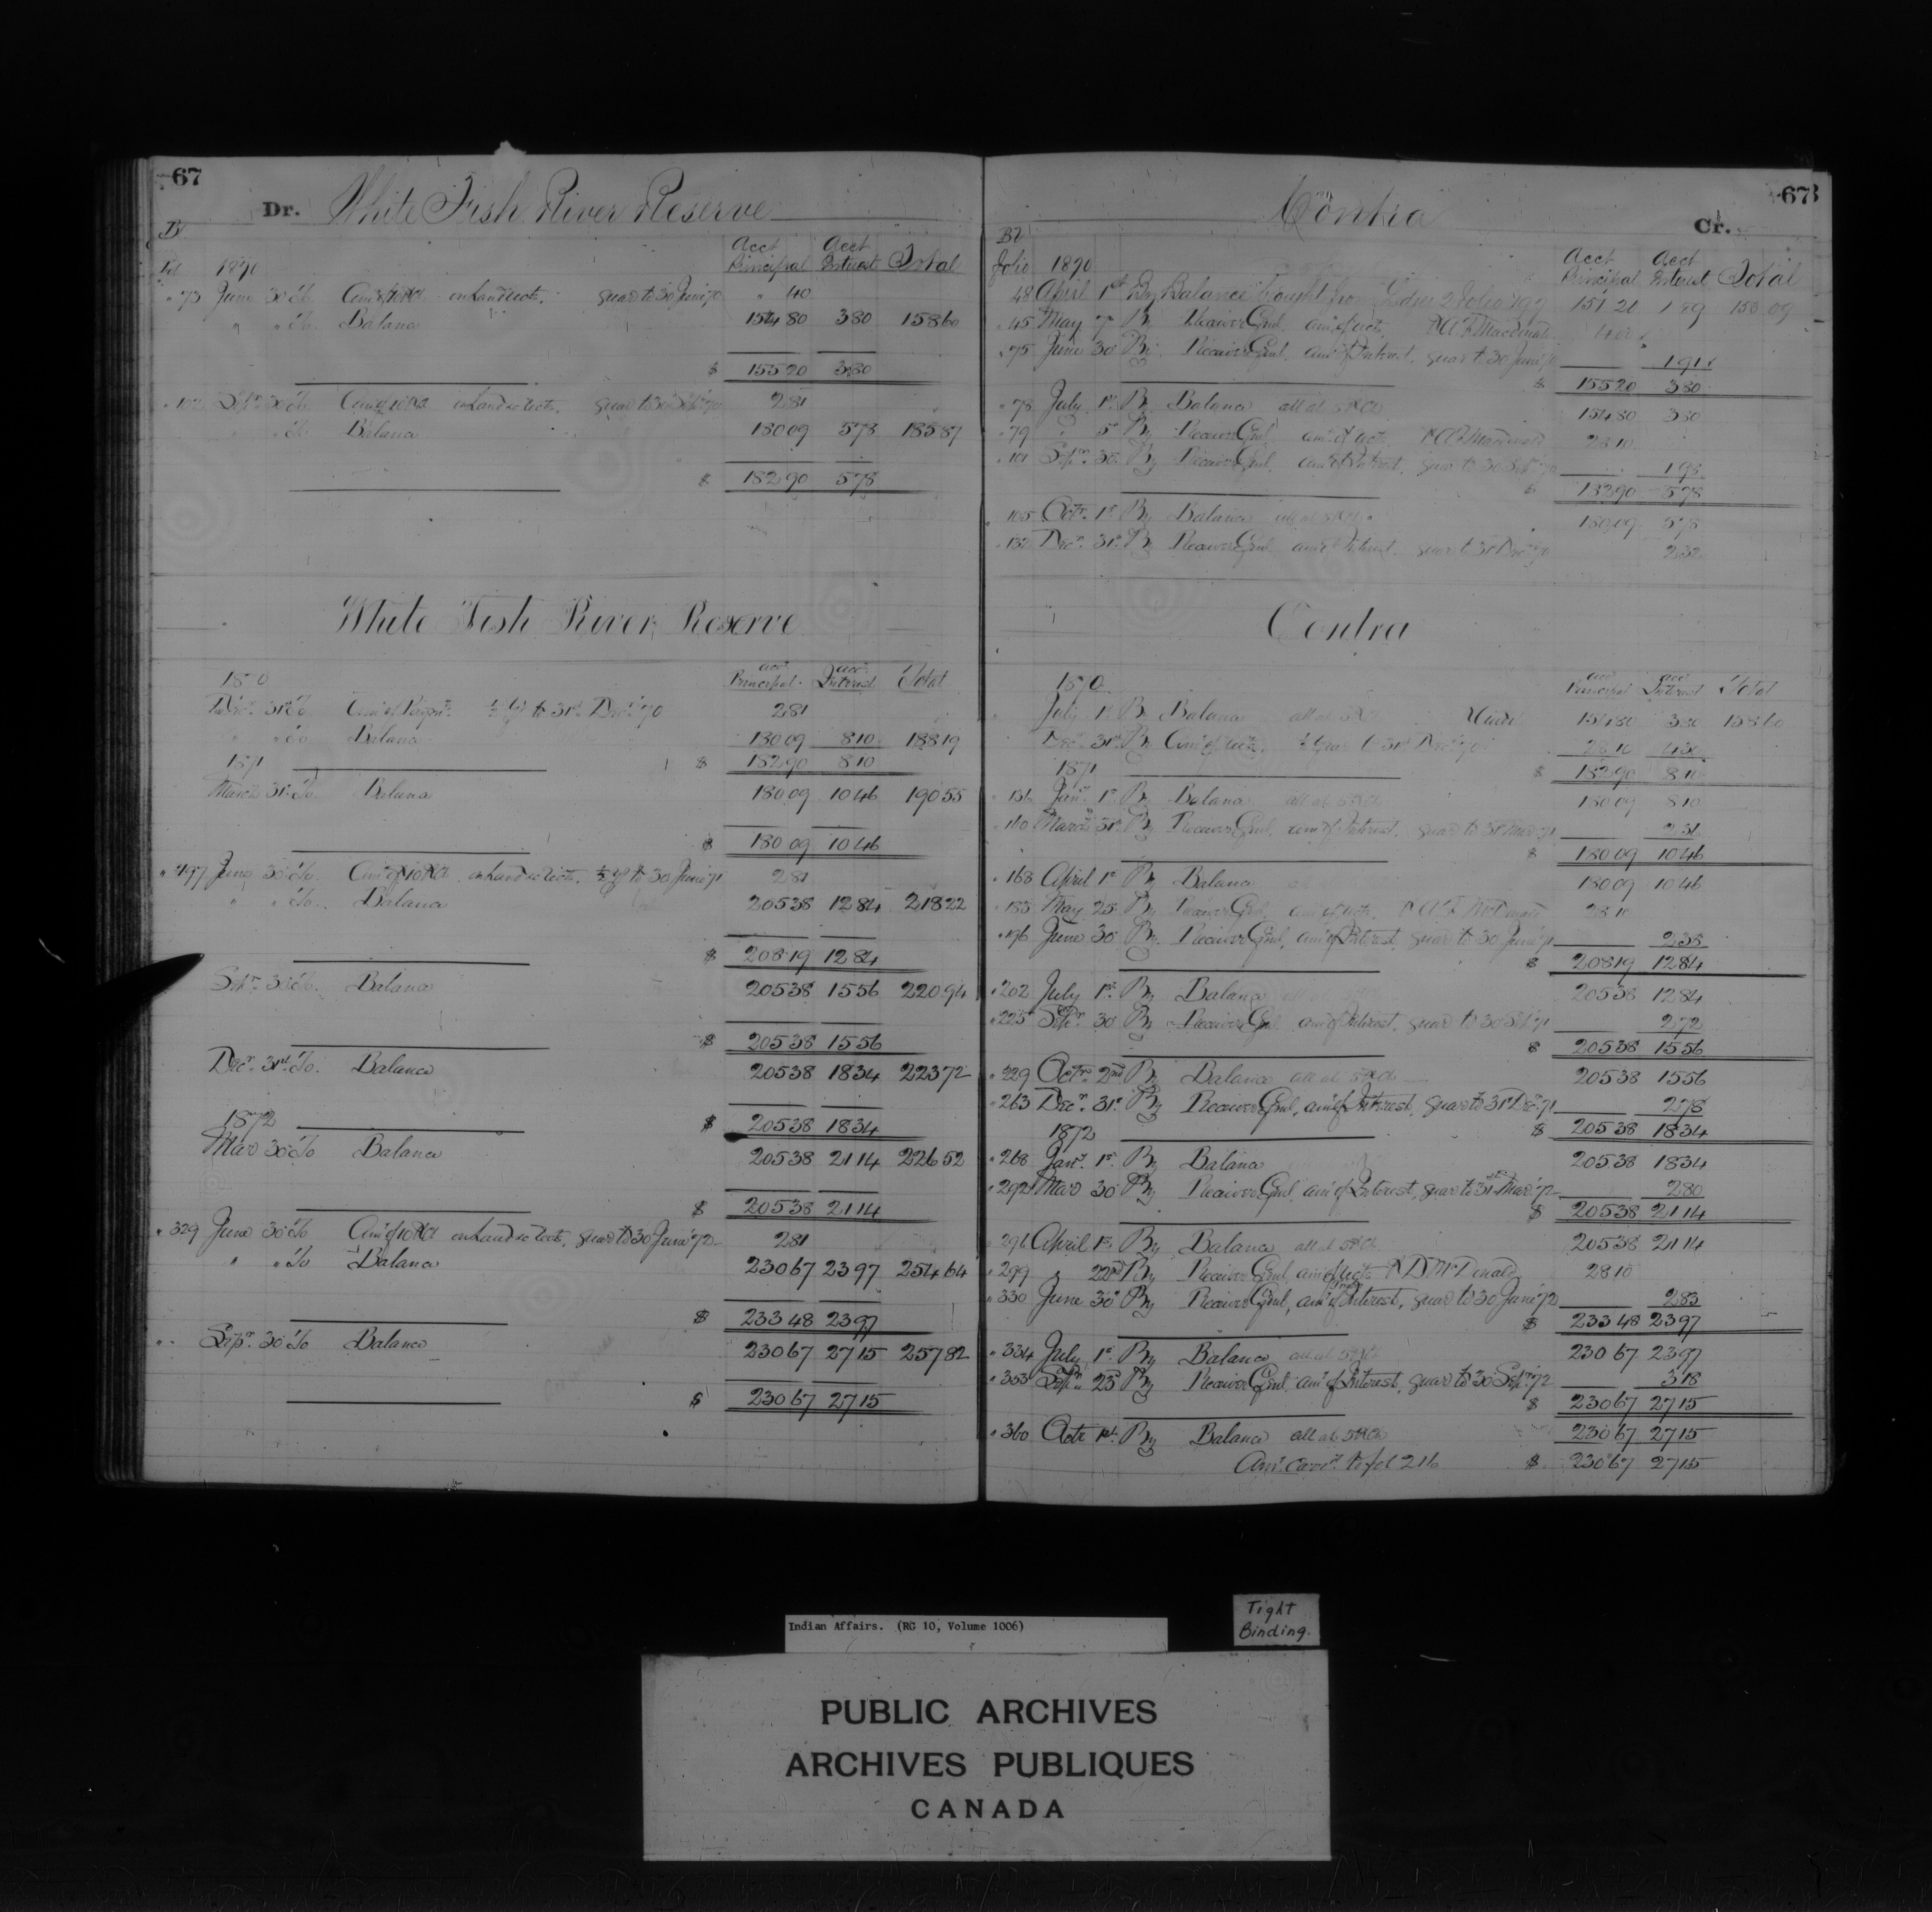 67
Dr. White Fish River Reserve
Acct Principal Acct Interest Total
1870
" 73 June 30 To Am't of 10 P Ct on Land collects. quar to 30 June '70 " 40
" " To Balance 154 80 3 80 158 60
$ 155 20 3 80
Sept. 30 To Am't of 10 P Ct on Land collects. quar to 30 Sept '70 2 81
" To Balance 180 09 5 78 185 87
$ 182 90 5 78
White Fish River Reserve
1870
acct Principal acct Interest Total
Decr. 31st To 31st Decr '70 2 81
" " To Balance 180 09 8 10 188 19
1871 $ 182 90 8 10
March 31st To Balance 180 09 10 46 190 55
$ 180 09 10 46
" 197 June 30 To Am't of 10 P Ct on Land collects, ½ yr to 30 June '71 2 81
" " To Balance 205 38 12 84 218 22
$ 208 19 12 84
Sepr. 30 To Balance 205 38 15 56 220 94
$ 205 38 15 56
Decr. 31st To Balance 205 38 18 34 223 72
1872 $ 205 38 18 34
Mar 30 To Balance 205 38 21 14 226 52
$ 205 38 21 14
" 329 June 30 To Am't of 10 P Ct on Land collects, quar to 30 June '72 2 81
" " To Balance 230 67 23 97 254 64
$ 233 48 23 97
Sepr. 30 To Balance 230 67 27 15 257 82
$ 230 67 27 15
67
Contra Cr.
Folio 1870
Acct Principal Acct Interest Total
48 April 1st By Balance brought from 151 20 1 89 153 09
" 45 May By Receiver Genl. am't of colls. 4 00
" 75 June 30 By Receiver Genl. am't of Interest, quar to 30 June '70 1 91
$ 155 20 3 80
" 78 July 1st By Balance all at 5 P Ct 154 80 3 80
" 79 " 5 By Receiver Genl. am't of colls. 28 10
" 101 Sepr. 30 By Receiver Genl. am't of Interest, quar to 30 Sept '70 1 98
$ 182 90 5 78
" 105 Octr. 1st By Balance all at 5 P Ct 180 09 5 78
Decr. 31st By Receiver Genl. am't of Interest quar to 31 Dec '70 2 32
Contra
1870
acct Principal acct Interest Total
July 1st By Balance all at 5 P Ct 154 80 3 80 158 60
Decr. 31st By Am't of collects. ½ year to 31st Decr '70 28 10 4 30
1871 $ 182 90 8 10
" 136 Jany. 1st By Balance all at 5 P Ct 180 09 8 10
" 160 March 31st By Receiver Genl. am't of Interest. quar to 31 Mar '71 2 36
$ 180 09 10 46
" 168 April 1st By Balance 180 09 10 46
" 183 May 25 By Receiver Genl. am't of colls. 28 10
" 196 June 30 By Receiver Genl, am't of Interest, quar to 30 June '71 2 38
$ 208 19 12 84
" 202 July 1st By Balance 205 38 12 84
" 225 Sepr. 30 By Receiver Genl am't of Interest, quar to 30 Sept '71 2 72
$ 205 38 15 56
" 229 Octr. 2nd By Balance all at 5 P Ct 205 38 15 56
" 263 Decr. 31st By Receiver Genl, am't of Interest, quar to 31 Dec '71 2 78
1872 $ 205 38 18 34
" 268 Jany. 1st By Balance 205 38 18 34
" 292 Mar 30 By Receiver Genl am't of Interest, quar to 31st Mar '72 2 80
$ 205 38 21 14
" 296 April 1st By Balance all at 5 P Ct 205 38 21 14
" 299 " 22nd By Receiver Genl, am't of colls P D McDonald 28 10
" 330 June 30 By Receiver Genl, am't of Interest, quar to 30 June '72 2 83
$ 233 48 23 97
" 334 July 1st By Balance all at 5 P Ct 230 67 23 97
" 353 Sepr. 23 By Receiver Genl am't of Interest, quar to 30 Sepr '72 3 18
$ 230 67 27 15
" 360 Octr 1st By Balance all at 5 P Ct 230 67 27 15
Am't carrd. to fol 216 $ 230 67 27 15
Indian Affairs. (RG 10, Volume 1006)
Tight
Binding.
PUBLIC ARCHIVES
ARCHIVES PUBLIQUES
CANADA